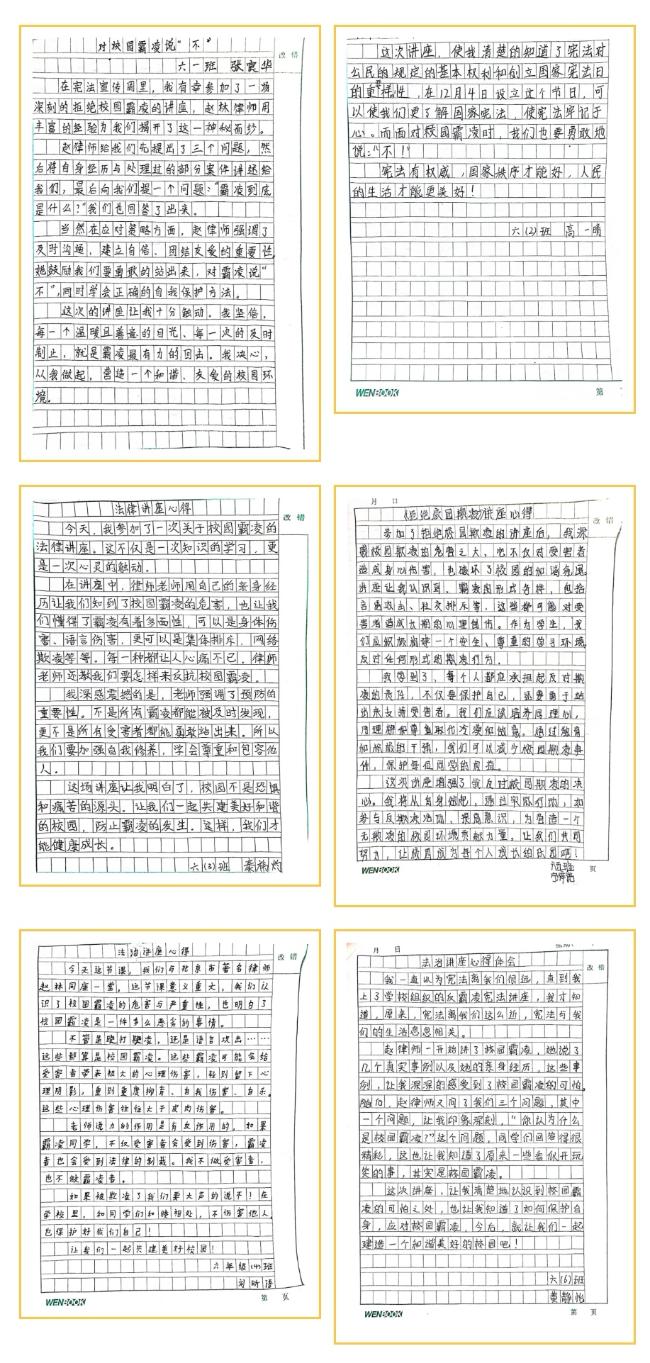 对校园霸凌说“不”
改 错
六一班 张
在宪法宣传周里，我有幸参加了一场
深刻的拒绝校园霸凌的讲座，赵林律师用
丰富的经验为我们揭开了这一神秘面纱。
赵律师给我们先提出了三个问题，然
后将自身经历与处理过的部分案件讲述给
我们，最后向我们提一个问题：“霸凌到底
是什么？”我们也回答了出来。
当然在应对策略方面，赵律师强调了
及时沟通，建立自信、团结友爱的重要性，
她鼓励我们要勇敢的站出来，对霸凌说“
不”，同时学会正确的自我保护方法。
这次的讲座让我十分触动。我坚信，
每一个温暖且善意的目光、每一次的及时
制止，就是霸凌最有力的回击。我决心，
从我做起，营造一个和谐、友爱的校园环
境。
这次讲座，使我清楚的知道了宪法对
公民的规定的基本权利和创立国家宪法日
的重要性，在12月4日设立这个节日，可
以使我们更了解国家宪法，使宪法牢记于
心。而面对校园霸凌时，我们也要勇敢地
说：“不！”
宪法有权威，国家秩序才能好，人民
的生活才能更美好！
六(2)班 高一晴
WENBOOK
第
法律讲座心得
改 错
今天，我参加了一次关于校园霸凌的
法律讲座。这不仅是一次知识的学习，更
是一次心灵的触动。
在讲座中，律师老师用自己的亲身经
历让我们知到了校园霸凌的危害，也让我
们懂得了霸凌有着多面性，可以是身体伤
害、语言伤害，更可以是集体排斥，网络
欺凌等等。每一种都让人心痛不已。律师
老师还教我们要怎样来反抗校园霸凌。
我深感震撼的是，老师强调了预防的
重要性。不是所有霸凌都能被及时发现，
更不是所有受害者都能勇敢站出来。所以
我们要加强自我修养，学会尊重和包容他
人。
这场讲座让我明白了，校园不是恐惧
和痛苦的源头。让我们一起共建美好和谐
的校园，防止霸凌的发生。这样，我们才
能健康成长。
六(3)班
月 日
拒绝校园欺凌讲座心得
改 错
参加了拒绝校园欺凌的讲座后，我深
感校园欺凌的危害之大，它不仅对受害者
造成身心伤害，也破坏了校园的和谐氛围
讲座让我认识到，霸凌的形式多样，包括
言语攻击、社交排斥等，这些都可能对受
害者造成长期的心理创伤。作为学生，我
们应积极构建一个安全、尊重的学习环境，
反对任何形式的欺凌行为。
我学到了，每个人都应承担起反对欺
凌的责任，不仅要保护自己，还要勇于站
出来支持受害者。我们应该培养同理心，
用理解和尊重取代伤害和敌意。通过教育
和积极的干预，我们可以减少校园欺凌事
件，保护每位同学的权益。
这次讲座增强了我反对校园欺凌的决
心。我将从自身做起，通过实际行动，如
参与反欺凌活动、提高意识，为营造一个
无欺凌的校园环境贡献力量。让我们共同
努力，让校园成为每个人成长的乐园吧！
WENBOOK
页
法治讲座心得
改 错
今天这节课，我们与北京市著名律师
赵林同座一堂，这节课意义重大，我们认
识了校园霸凌的危害与严重性，也明白了
校园霸凌是一件多么恶劣的事情。
不管是殴打硬凌，还是语言攻击……
这些都算是校园霸凌。这些霸凌可能会给
受害者带来极大的心理伤害，轻到留下心
理阴影，重到重度抑郁、自我伤害、自杀。
这些心理伤害往往大于皮肉伤害。
老师说力的作用是有反作用的。如果
霸凌同学，不仅受害者会受到伤害，霸凌
者也会受到法律的制裁。我不做受害者，
也不做霸凌者。
如果被欺凌了我们要大声的说不！在
学校里，和同学们和睦相处，不伤害他人，
也保护好我们自己！
让我们一起共建美好校园！
六年级(4)班
WENBOOK
第 页
月 日
法治讲座心得体会
改 错
我一直认为宪法离我们很远，直到我
上了学校组织的反霸凌宪法讲座，我才知
道，原来，宪法离我们这么近，宪法与我
们的生活息息相关。
赵律师一开始讲了校园霸凌，她说了
几个真实事例以及她的亲身经历，这些事
例，让我深深的感受到了校园霸凌的可怕。
随后，赵律师又问了我们三个问题，其中
一个问题，让我印象深刻，“你认为什么
是校园霸凌？”这个问题，同学们回答得很
精彩，这也让我知道了原来一些看似开玩
笑的事，其实是校园霸凌。
这次讲座，让我清楚地认识到校园霸
凌的可怕之处，也让我知道了如何保护自
身，应对校园霸凌，今后，就让我们一起
建造一个和谐美好的校园吧！
六(6)班
黄静怡
WENBOOK
第 页